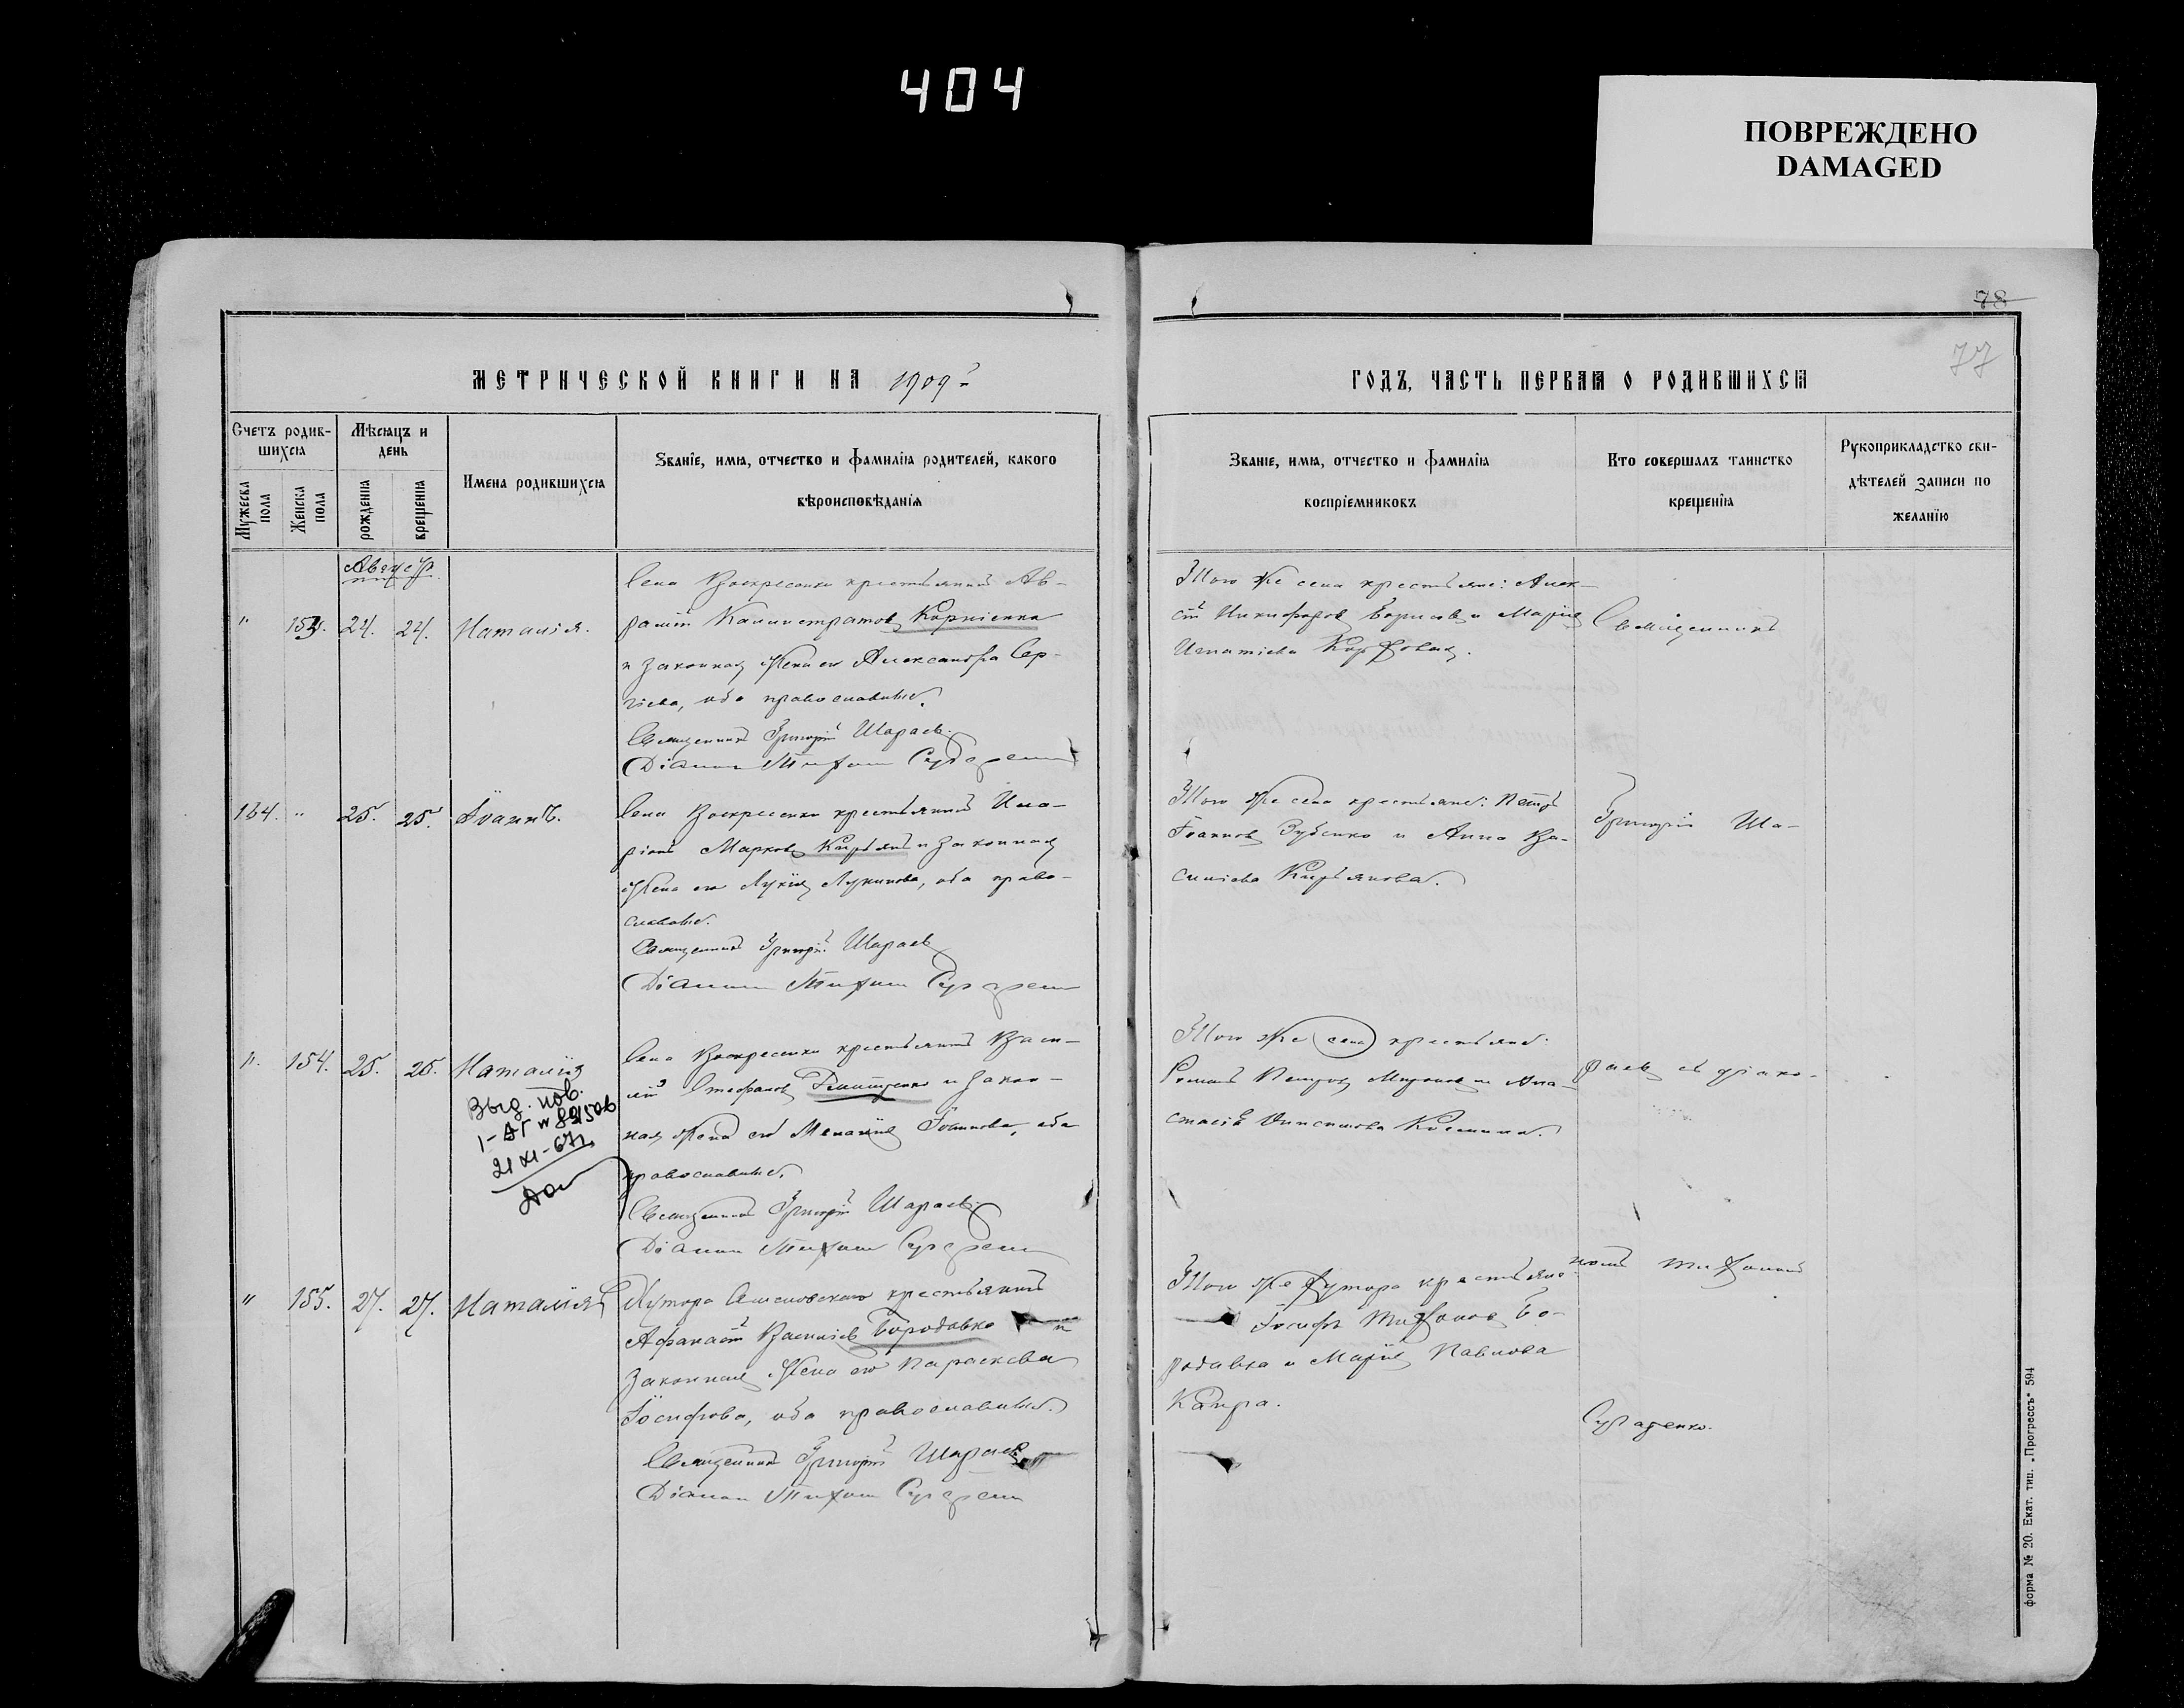 404
ПОВРЕЖДЕНО
DAMAGED
78
77
МЕТРИЧЕСКОЙ КНИГИ НА 1909
ГОДЪ, ЧАСТЬ ПЕРВАЯ О РОДИВШИХСЯ
Счетъ родив-
шихся
Мужеска
пола
Женска
пола
Мѣсяцъ и
день
рожденія
крещенія
Имена родившихся
Званіе, имя, отчество и фамилія родителей, какого
вѣроисповѣданія
Званіе, имя, отчество и фамилія
воспріемниковъ
Кто совершалъ таинство
крещенія
Рукоприкладство сви-
дѣтелей записи по
желанію
Августъ
" 153. 24. 24. Наталія.
Села Воскресенки крестьянинъ Ав-
рамій Калистратовъ Корніенко
и законная жена его Александра Сер-
гіева, оба православные.
Священникъ Григорій Шараевъ
Діаконъ Тихон
Того же села крестьяне: Алек-
сій Никифоровъ Борисовъ и Марія
Игнатіева
Священникъ
164. " 25. 25. Іоаннъ.
Села Воскресенки крестьянинъ Ила-
ріонъ Марковъ Кирьянъ и законная
жена его Лукія Лукинова, оба право-
славные.
Священникъ Григорій Шараевъ
Діаконъ Тихон
Того же села крестьяне: Петръ
Іоанновъ Зубенко и Анна Ва-
силіева Кирьянова.
Григорій Ша-
" 154. 25. 25. Наталія
Выд. пов.
21 XI-67г
Села Воскресенки крестьянинъ Васи-
лій Стефановъ и закон-
ная жена его Меланія Іоаннова, оба
православные.
Священникъ Григорій Шараевъ
Діаконъ Тихон
Того же села крестьяне:
Романъ Петровъ Мироновъ и Ана-
стасія
раевъ съ діако-
" 155. 27. 27. Наталія
Хутора крестьянинъ
Афанасій Василіевъ Бородавко и
законная жена его Параскева
Іосифова, оба православные.
Священникъ Григорій Шараевъ
Діаконъ Тихон
Того же хутора крестьяне
Іосифъ Тихоновъ Бо-
родавка и Марія Павлова
номъ Тихономъ
форма № 20. Екат. тип. „Прогрессъ" 594